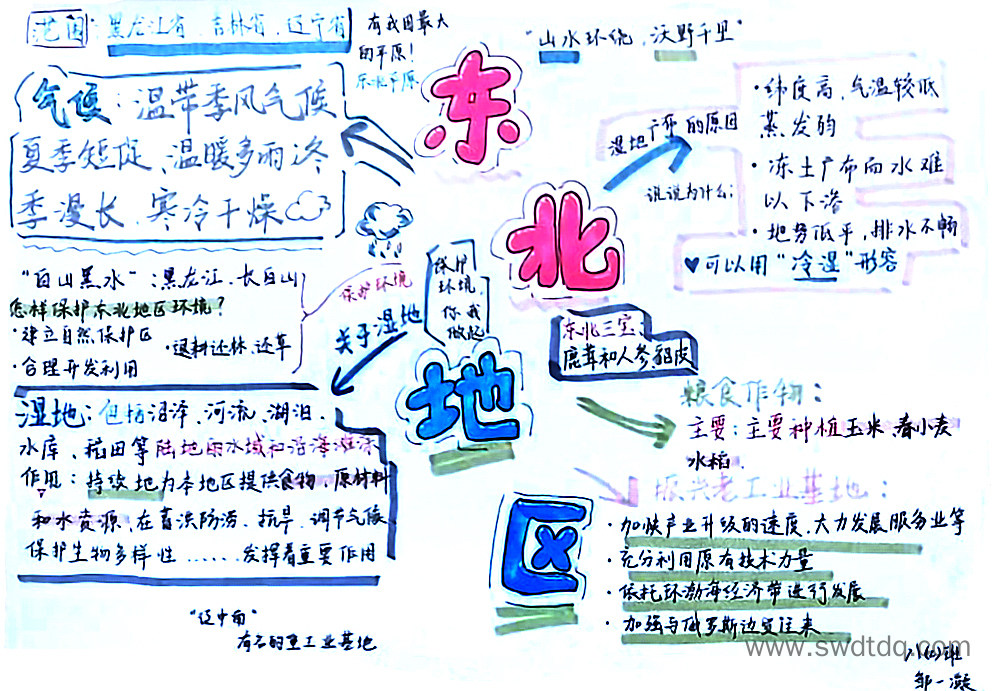 范围：黑龙江省、吉林省、辽宁省
有我国最大
的平原！
东北平原
气候：温带季风气候
夏季短促、温暖多雨；冬
季漫长、寒冷干燥
"白山黑水"：黑龙江、长白山
怎样保护东北地区环境？
·建立自然保护区
·退耕还林、还草
·合理开发利用
保护环境
保护
环境，
你我
做起
关于湿地
湿地：包括沼泽、河流、湖泊、
水库、稻田等陆地面水域和沿海滩涂
作用：持续地为本地区提供食物、原材料
和水资源，在蓄洪防涝、抗旱、调节气候、
保护生物多样性……发挥着重要作用
"辽中南"
有名的重工业基地
东
北
地
区
"山水环绕，沃野千里"
湿地广布的原因
说说为什么：
·纬度高、气温较低
蒸发弱
·冻土广布而水难
以下渗
·地势低平，排水不畅
♥可以用"冷湿"形容
东北三宝：
鹿茸和人参、貂皮
粮食作物：
主要：主要种植玉米、春小麦
水稻.
振兴老工业基地：
·加快产业升级的速度、大力发展服务业等
·充分利用原有技术力量
·依托环渤海经济带进行发展
·加强与俄罗斯边贸往来
www.swdtdq.com